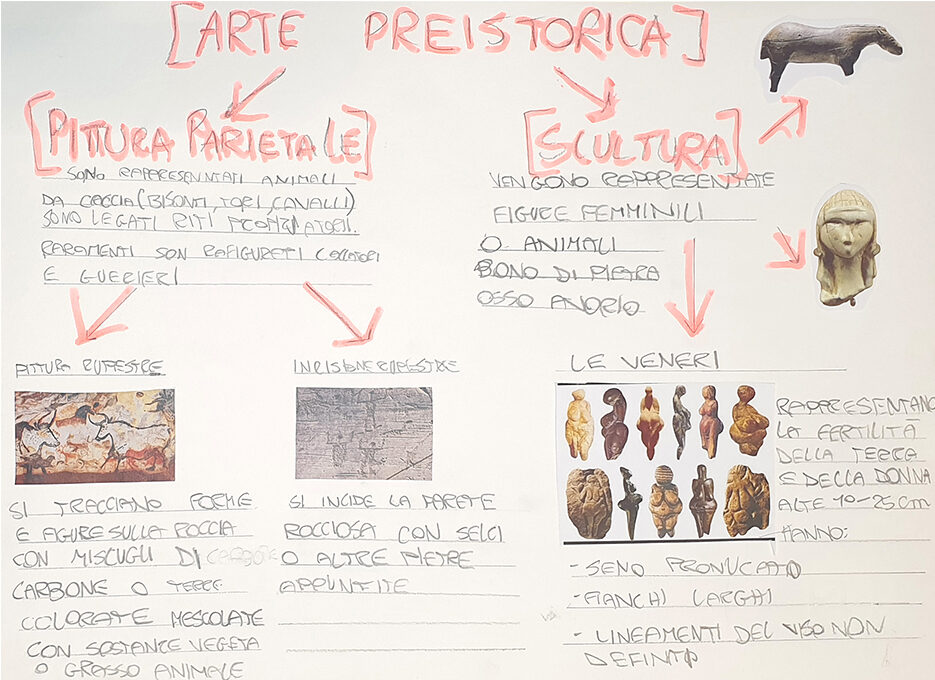 [ARTE PREISTORICA]
[PITTURA PARIETALE]
SONO RAPPRESENNTATI ANIMALI
DA CACCIA (BISONTI, TORI, CAVALLI)
SONO LEGATI RITI
RARAMENTI SON RAFIGURETI CACCIATORI
E GUERIERI
PITTURA RUPESTRE
SI TRACCIANO FORME
E FIGURE SULLA ROCCIA
CON MISCUGLI DI
CARBONE O TERRE
COLORATE MESCOLATE
CON SOSTANCE VEGETA
O GRASSO ANIMALE
INCISIONE RUPESTRE
SI INCIDE LA PARETE
ROCCIOSA CON SELCI
O ALTRE PIETRE
APPUNTITE
[SCULTURA]
VENGONO RAPPRESENTATE
FIGURE FEMMINILI
O ANIMALI
SONO DI PIETRA
OSSO AVORIO
LE VENERI
RAPPRESENTANO
LA FERTILITÀ
DELLA TERRA
E DELLA DONNA
ALTE 10-25 cm
HANNO:
- SENO
- FIANCHI LARGHI
- LINEAMENTI DEL VISO NON
DEFINTI